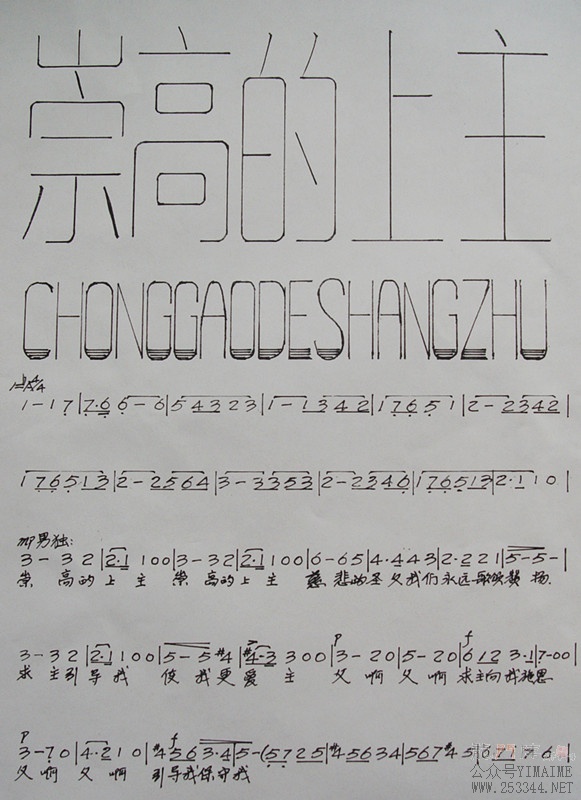 崇高的上主
CHONGGAODESHANGZHU
1 - 1 7 | 7·6 6 - 6 | 5 4 3 2 3 | 1 - 1 3 4 2 | 1 7 6 5 1 | 2 - 2 3 4 2 |
1 7 6 5 1 3 | 2 - 2 5 6 4 | 3 - 3 3 5 3 | 2 - 2 3 4 6 | 1 7 6 5 1 3 | 2·1 1 0 |
男独:
3 - 3 2 | 2·1 1 0 0 | 3 - 3 2 | 2·1 1 0 0 | 6 - 6 5 | 4·4 4 3 | 2·2 2 1 | 5 - 5 - |
崇 高的上 主 崇 高的上 主 慈 悲的圣父我们永远歌唱赞 扬
3 - 3 2 | 2·1 1 0 0 | 5 - 5 #4 | #4·3 3 0 0 | 3 - 2 0 | 5 - 2 0 | 6 1 2 3·1 | 7 - 0 0 |
求 主引导我 使 我更爱 主 父 啊 父 啊 求主向我施恩
3 - 7 0 | 4·2 1 0 | #4 5 6 3·4 | 5 - (5 7 2 5 | #4 5 6 3 4 | 5 6 7 #4 5 | 6 7 1 7 6 |
父 啊 父 啊 引导我保守我
公众号YIMAIME
www.253344.NET